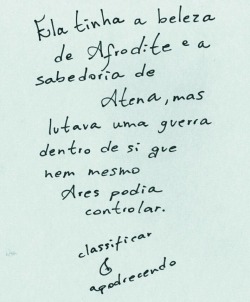 Ela tinha a beleza
de Afrodite e a
sabedoria de
Atena, mas
lutava uma guerra
dentro de si que
nem mesmo
Ares podia
controlar.
classificar
&
apodrecendo